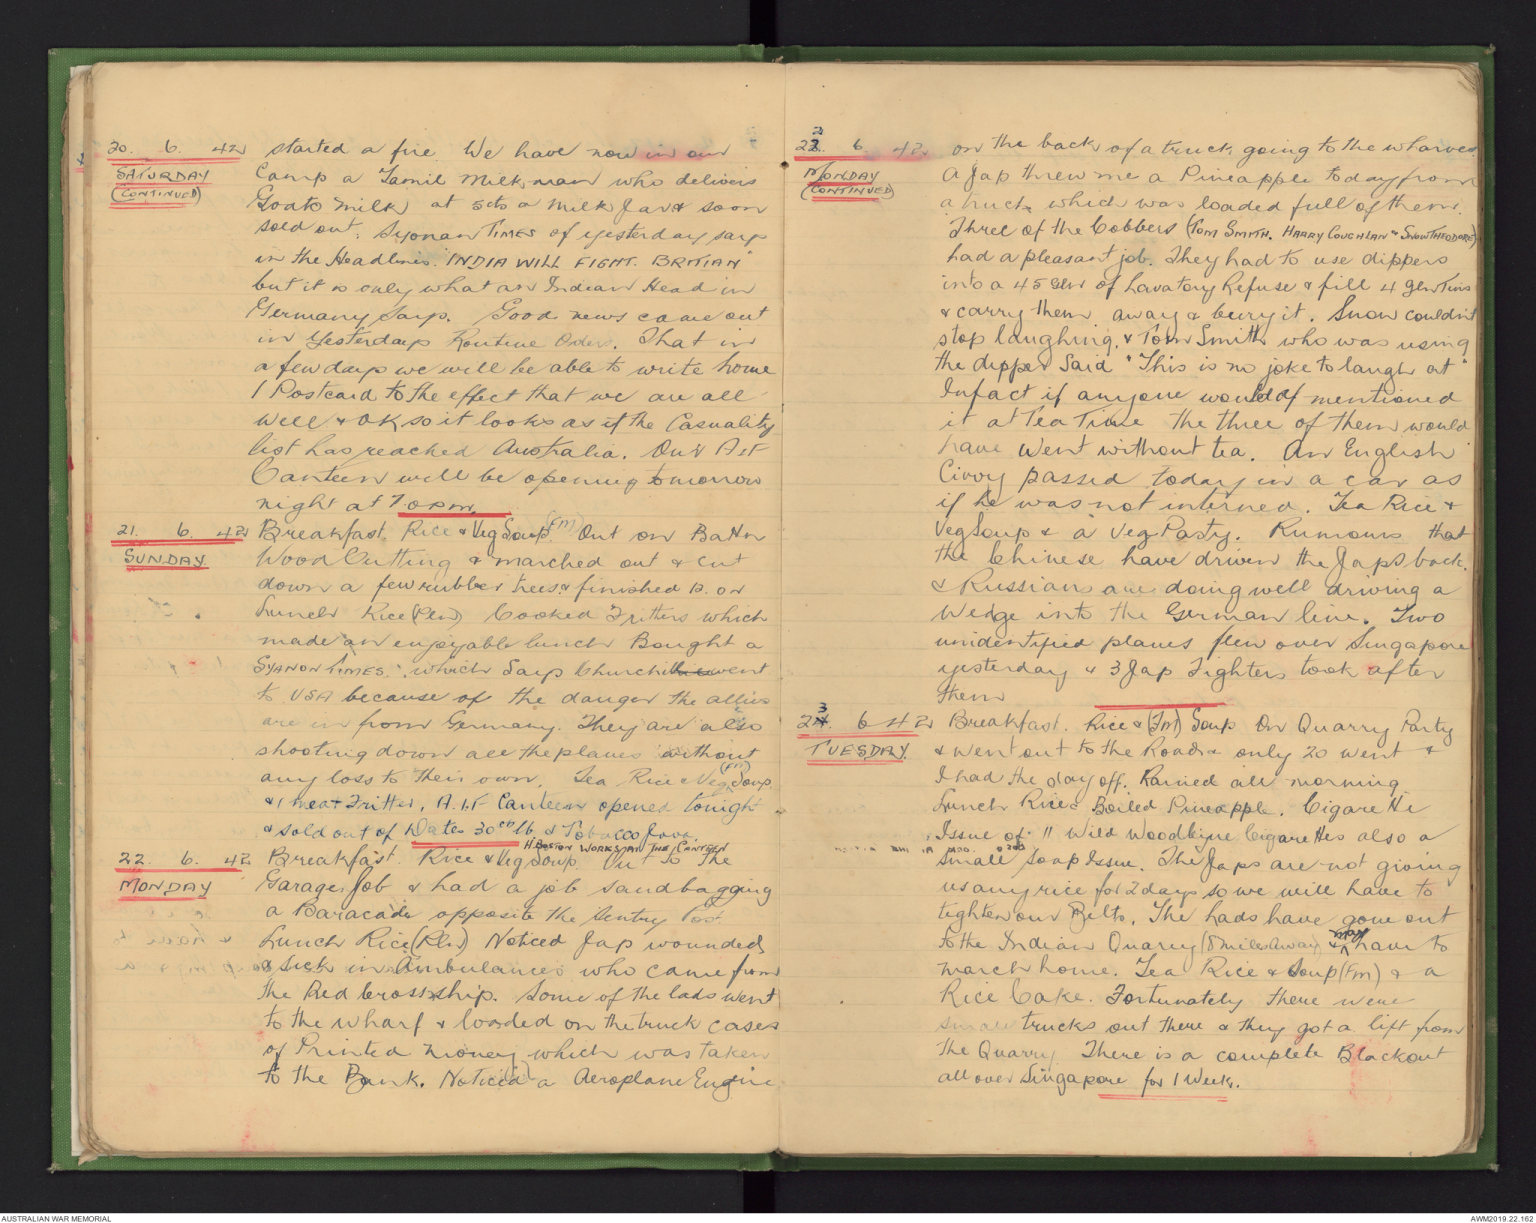 20. 6. 42 started a fire. We have now in our
SATURDAY Camp a Tamil Milkman who delivers
(CONTINUED) Goats Milk at 5cts a Milk Jar & soon
sold out. Syonan TIMES of yesterday says
in the Headlines. INDIA WILL FIGHT. BRITIAN"
but it is only what an Indian Head in
Germany says. Good news came out
in Yesterdays Routine Orders. That in
a few days we will be able to write home
1 Postcard to the effect that we are all
well & OK so it looks as if the Casuality
list has reached Australia. Our A.I.F
Canteen will be opening tomorrow
night at 7.0pm.
21. 6. 42 Breakfast. Rice & Veg Soup. (FM) Out on Battn
SUNDAY Wood Cutting & marched out & cut
down a few rubber trees & finished 12. on
Lunch Rice (Pln) Cooked Fritters which
made an enjoyable lunch Bought a
SYANON TIMES. which Says Churchill went
to USA because of the danger the allies
are in from Germany. They are also
shooting down all the planes without
any loss to their own. Tea Rice & Veg (FM) Soup
& 1 meat Fritter. A.I.F Canteen opened tonight
& sold out of Dates 30 cts lb & Tobacco Java.
H. BOSTON WORKS IN THE CANTEEN
22. 6. 42 Breakfast. Rice & Veg Soup. Out to The
MONDAY Garage Job & had a job sandbagging
a Baracade opposite the Sentry Post
Lunch Rice (Pln) Noticed Jap wounded
& sick in Ambulances who came from
the Red Cross ship. Some of the lads went
to the wharf & loaded on the truck cases
of Printed money which was taken
to the Bank. Noticed a Aeroplane Engine
22. 6. 42 on the back of a truck going to the wharves
MONDAY A Jap threw me a Pineapple today from
(CONTINUED) a truck which was loaded full of them.
Three of the Cobbers (TOM SMITH. HARRY COUGHLAN & SNOW THEODORE)
had a pleasant job. They had to use dippers
into a 45 Gln of Lavatory Refuse & fill 4 gln Tins
& carry them away & bury it. Snow couldn't
stop laughing, & Tom Smith who was using
the dipper Said "This is no joke to laugh at"
Infact if anyone would of mentioned
it at Tea Time the three of them would
have went without tea. An English
Civvy passed today in a car as
if he was not interned. Tea Rice &
Veg Soup & a Veg Pasty. Rumours that
the Chinese have driven the Japs back.
& Russians are doing well driving a
Wedge into the German line. Two
unidentified planes flew over Singapore
yesterday & 3 Jap Fighters took after
them
23 6 42 Breakfast. Rice & (FM) Soup On Quarry Party
TUESDAY. & went out to the Road & only 20 went &
I had the day off. Rained all morning
Lunch Rice & Boiled Pineapple. Cigarette
Issue of 11 Wild Woodbyne Cigarettes also a
small Soap Issue. The Japs are not giving
us any rice for 2 days so we will have to
tighten our Belts. The lads have gone out
to the Indian Quarry (8 miles Away) & may have to
march home. Tea Rice & Soup (FM) & a
Rice Cake. Fortunately there were
small trucks out there & they got a lift from
the Quarry There is a complete Blackout
all over Singapore for 1 Week.
AUSTRALIAN WAR MEMORIAL
AWM2019.22.162